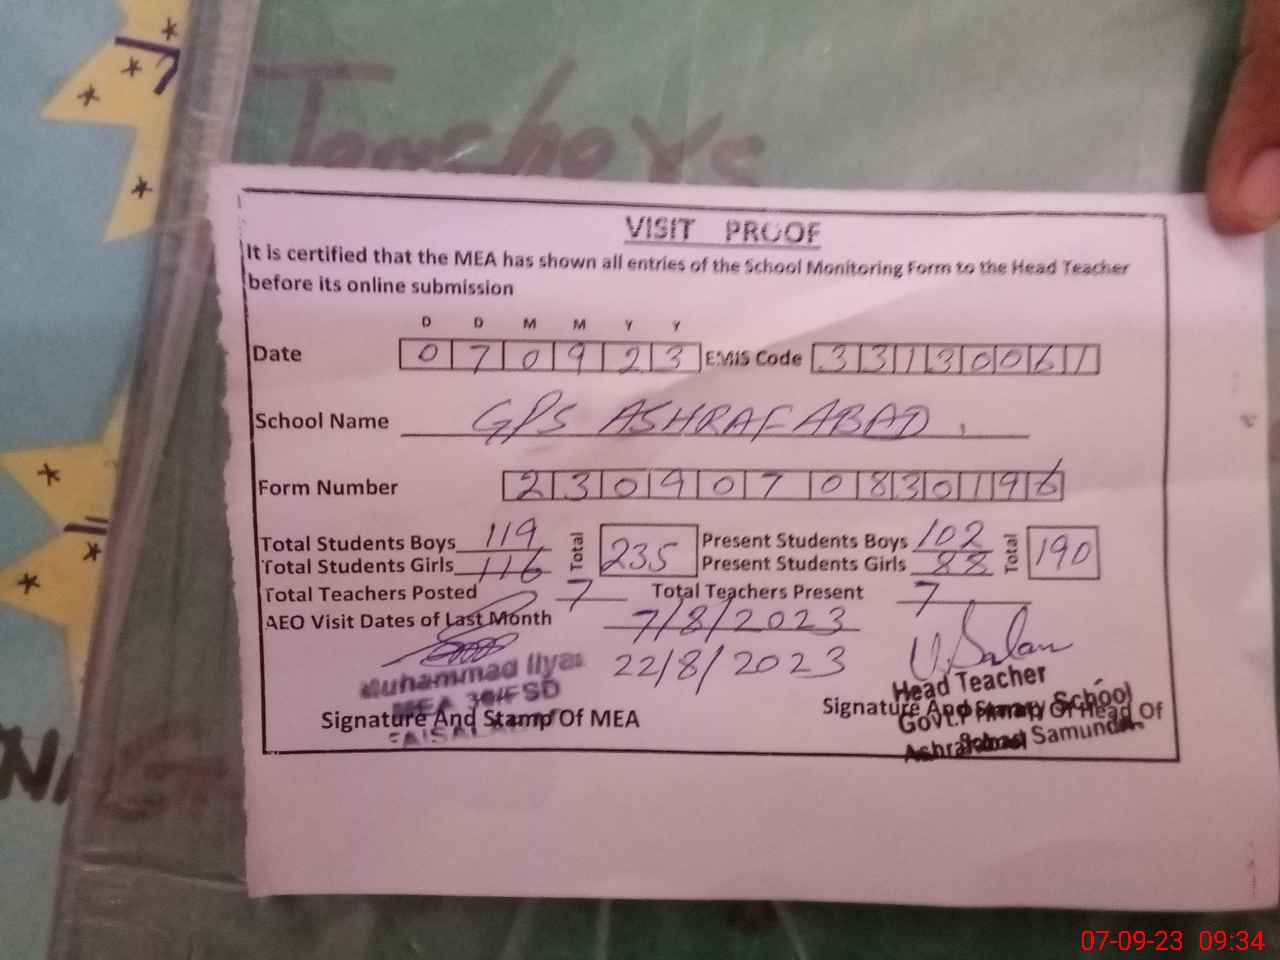 Teachers
VISIT PROOF
It is certified that the MEA has shown all entries of the School Monitoring Form to the Head Teacher
before its online submission
D D M M Y Y
Date 0 7 0 9 2 3 EMIS Code 3 3 1 3 0 0 6 1
School Name GPS ASHRAF ABAD
Form Number 2 3 0 9 0 7 0 8 3 0 1 9 6
Total Students Boys 119 Total 235 Present Students Boys 102 Total 190
Total Students Girls 116 Present Students Girls 88
Total Teachers Posted 7 Total Teachers Present 7
AEO Visit Dates of Last Month 7/8/2023
22/8/2023
Muhammad Ilyas
MEA
Signature And Stamp Of MEA
Head Teacher
Signature And Stamp Of Head Of
School
Govt. Primary School
Samundri
07-09-23 09:34